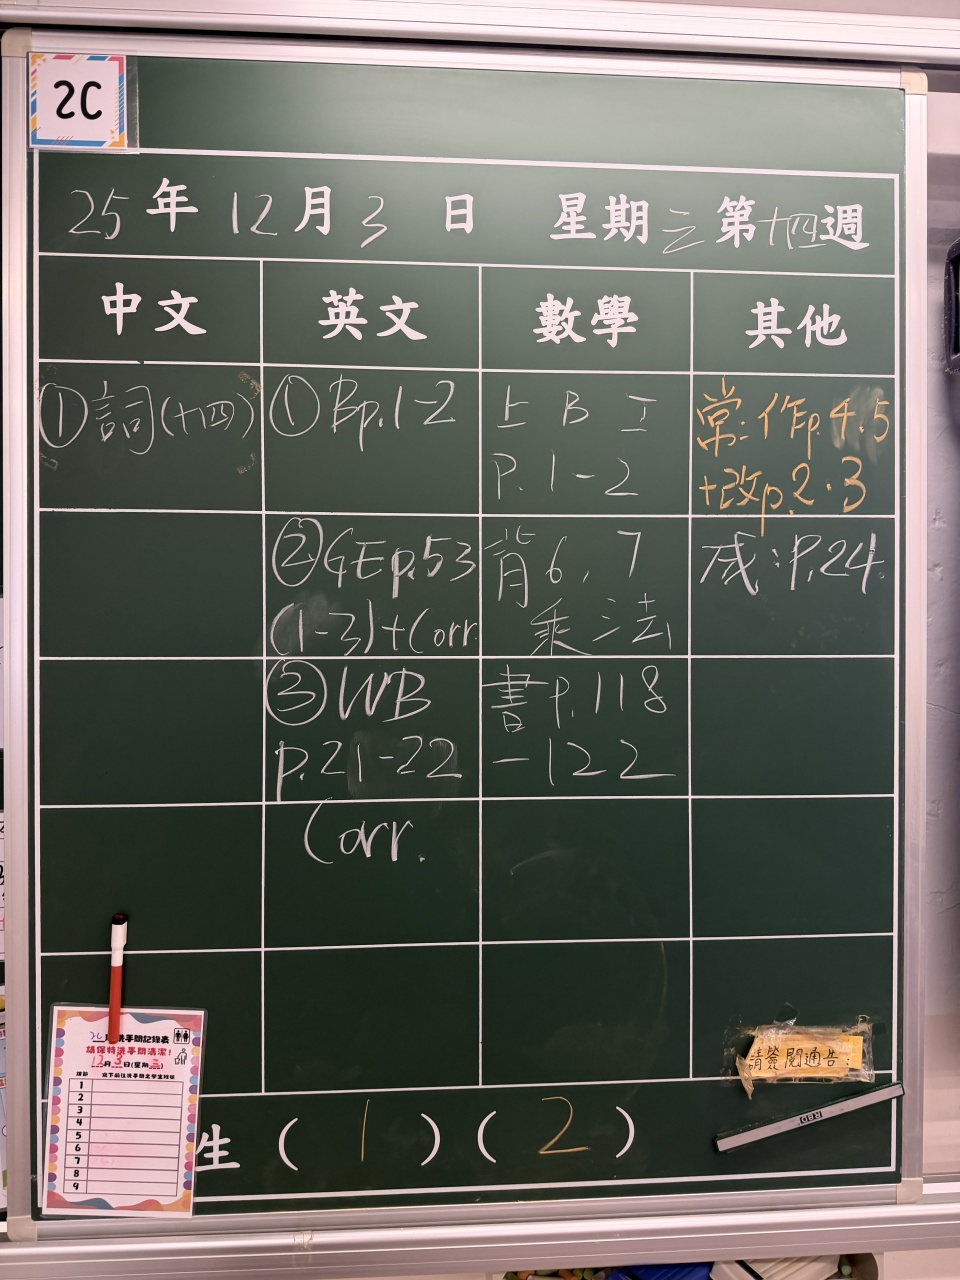 2C
25年12月3日 星期三第十四週
中文 英文 數學 其他
①詞(十四)
①Bp.1-2
②GEp.53
(1-3)+Corr
③WB
p.21-22
Corr.
上B工
P.1-2
背6,7
乘法
書P.118
-122
常:作p.4.5
+改p.2.3
成:P.24
洗手間記錄表
請保持洗手間清潔!
12月3日(星期三)
1
2
3
4
5
6
7
8
9
請簽閱通告
生(1)(2)